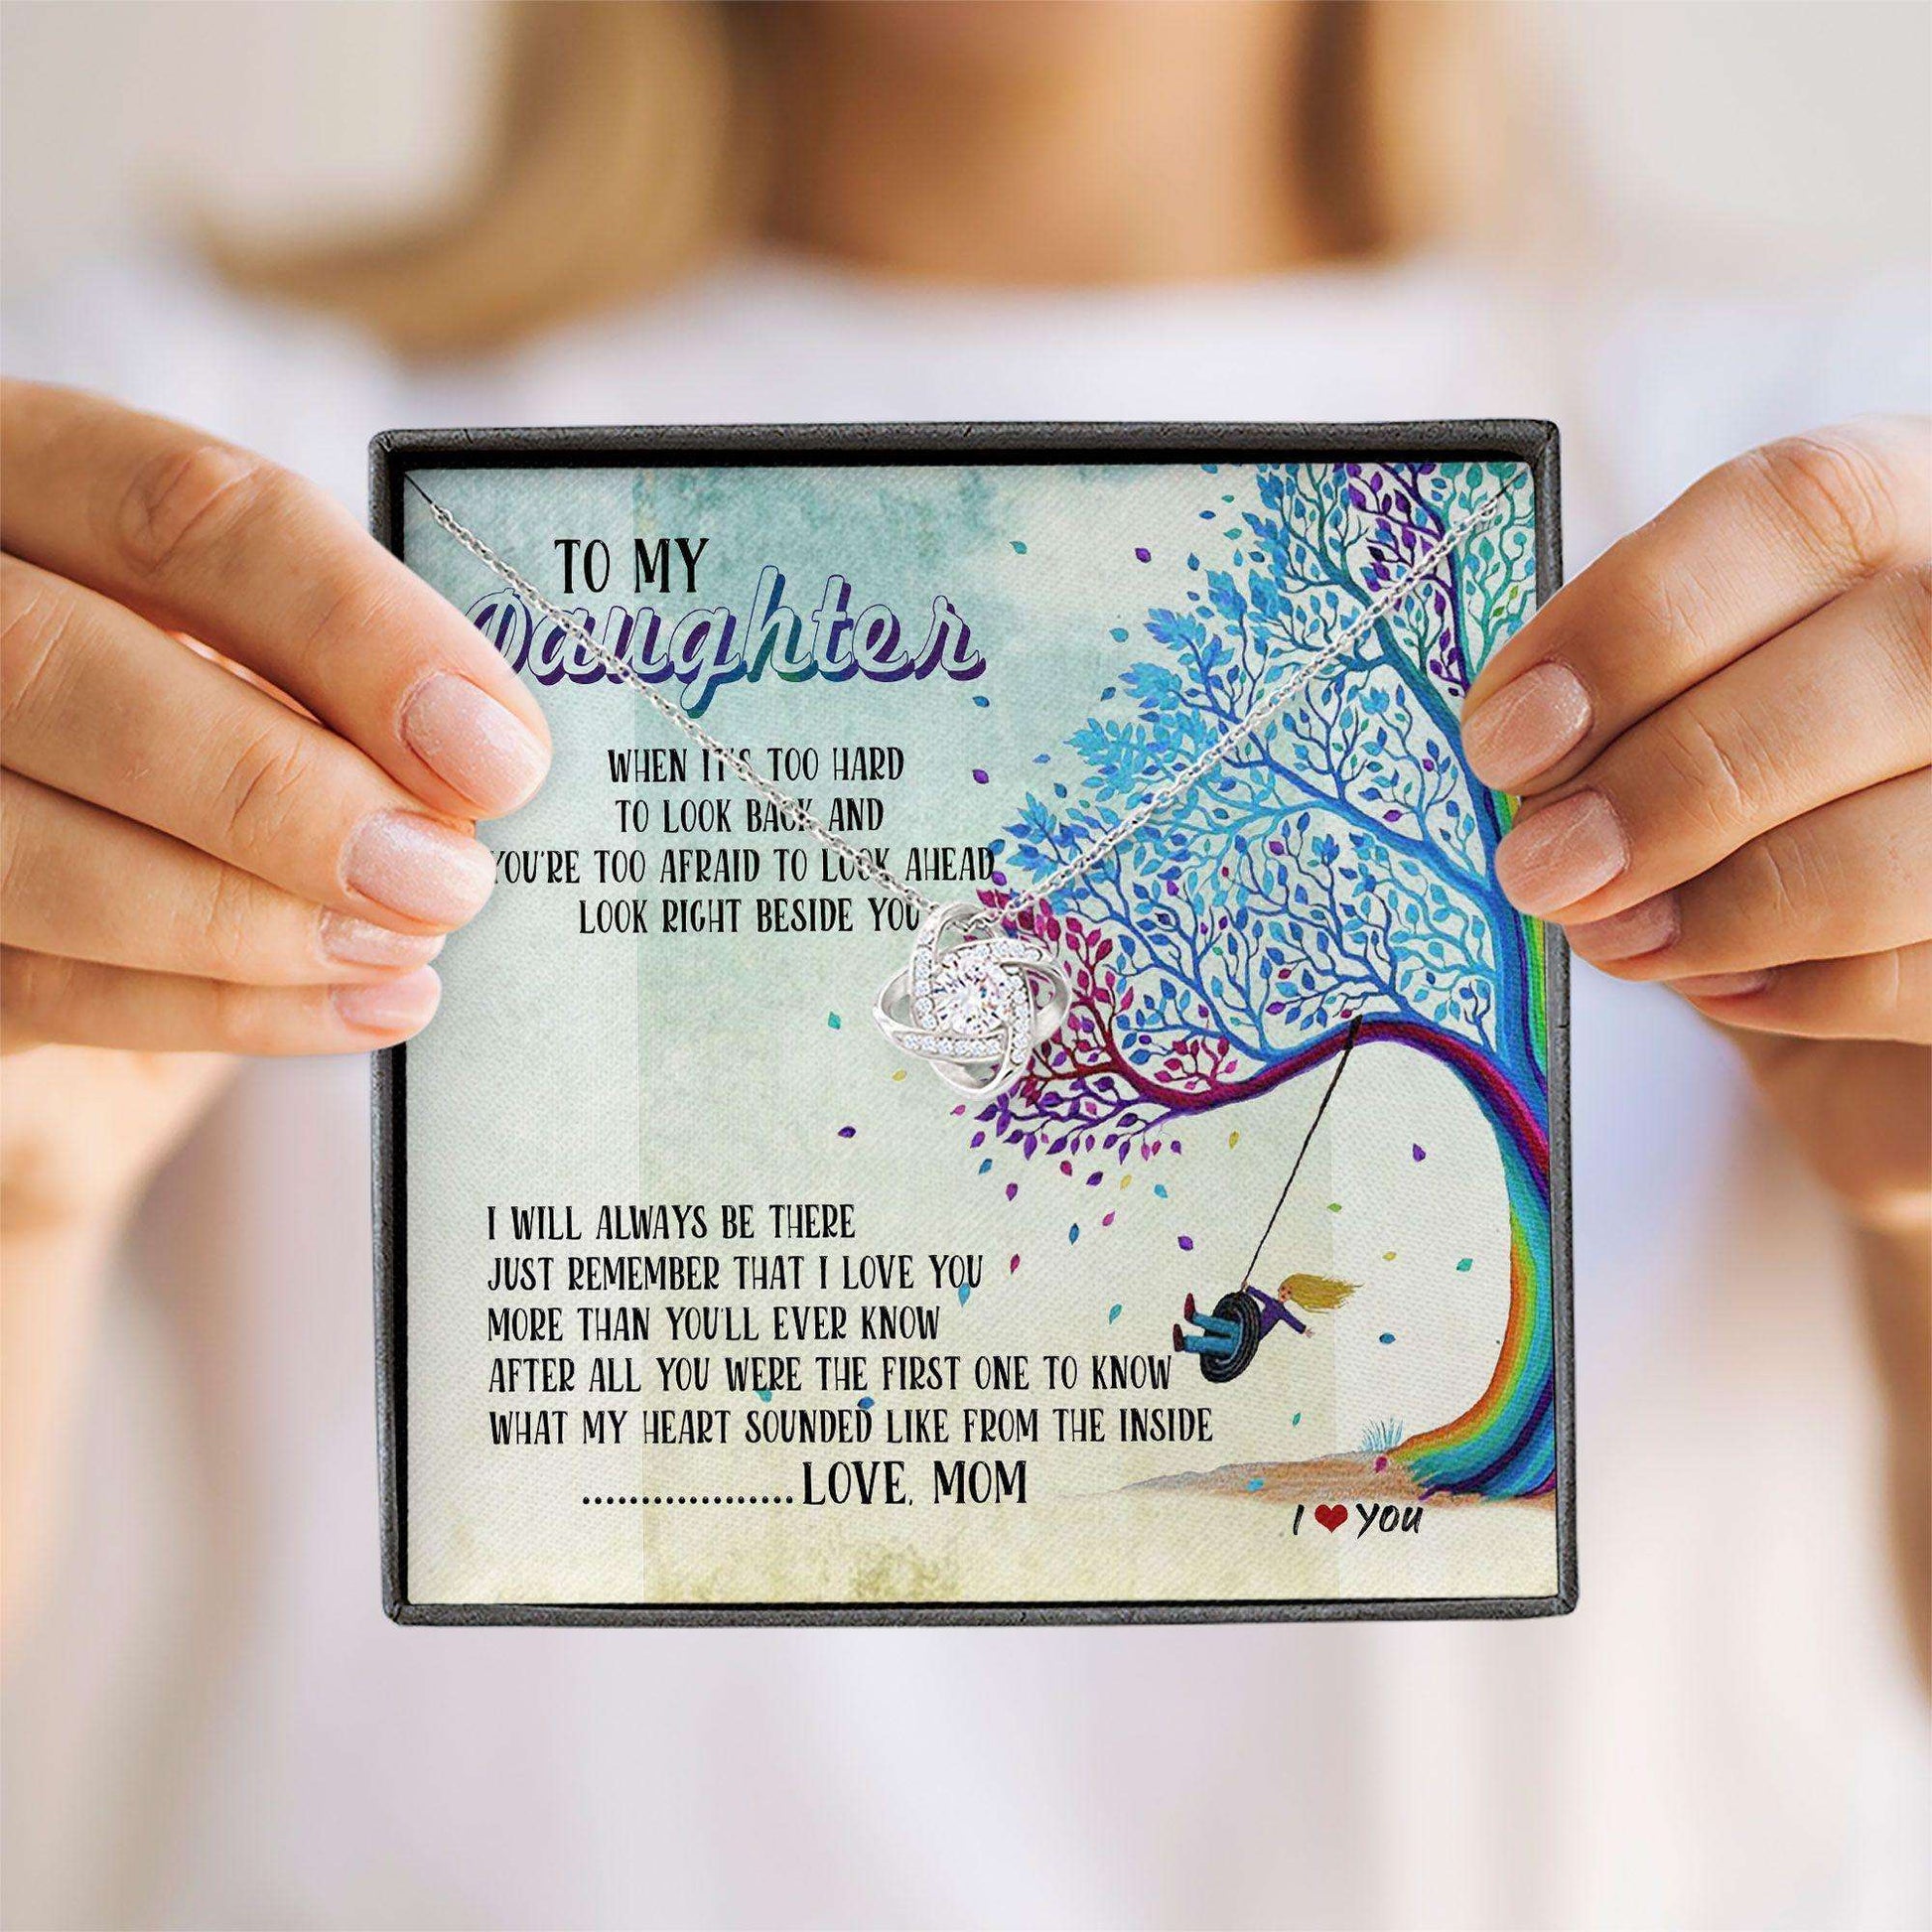 TO MY
Daughter
WHEN IT'S TOO HARD
TO LOOK BACK AND
YOU'RE TOO AFRAID TO LOOK AHEAD
LOOK RIGHT BESIDE YOU
I WILL ALWAYS BE THERE
JUST REMEMBER THAT I LOVE YOU
MORE THAN YOU'LL EVER KNOW
AFTER ALL YOU WERE THE FIRST ONE TO KNOW
WHAT MY HEART SOUNDED LIKE FROM THE INSIDE
..................LOVE, MOM
I ❤ YOU